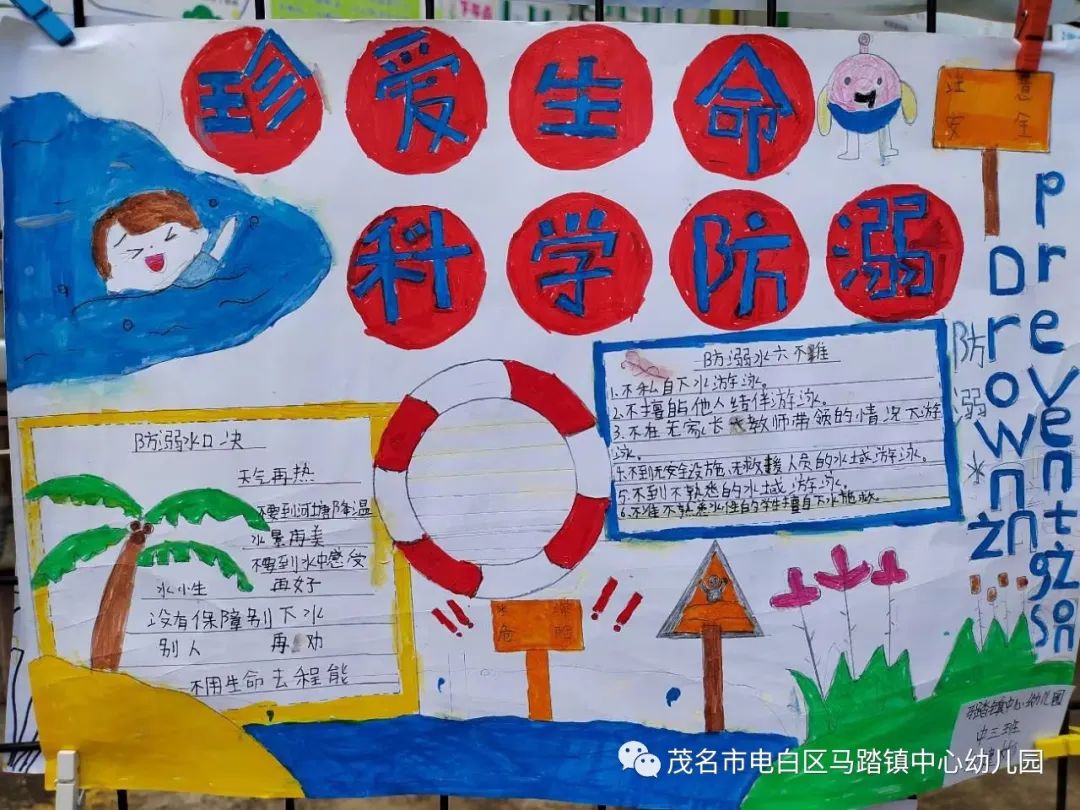 珍爱生命
科学防溺
注意
安全
防溺水六不准
1.不私自下水游泳。
2.不擅自与他人结伴游泳。
3.不在无家长或教师带领的情况下游
泳。
4.不到无安全设施、无救援人员的水域游泳。
5.不到不熟悉的水域游泳。
6.不准不熟悉水性的学生擅自下水施救。
防溺水口决
天气再热
不要到河塘降温
水景再美
不要到水中感受
水小生 再好
没有保障别下水
别人 再劝
不用生命去逞能
危险
防溺
马踏镇中心幼儿园
中三班
茂名市电白区马踏镇中心幼儿园